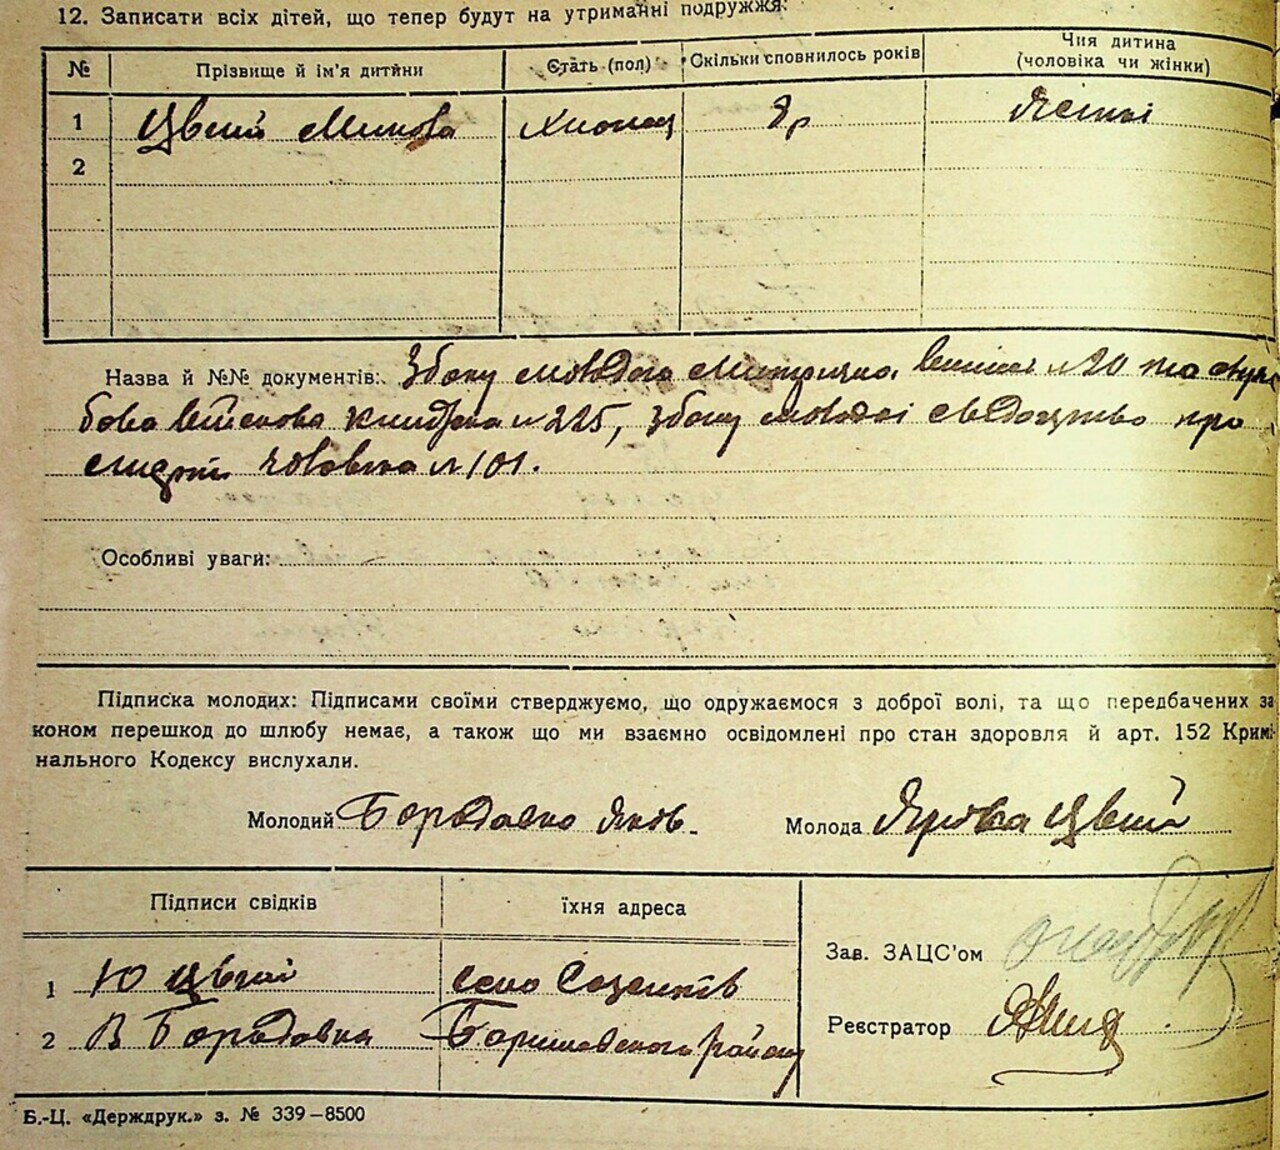 12. Записати всіх дітей, що тепер будут на утриманні подружжя:
№ Прізвище й ім'я дитини Стать (пол) Скільки сповнилось років Чия дитина (чоловіка чи жінки)
1 Цвєй Микола Хлопець 8 р
2
Назва й №№ документів: Збоку молодого метрична № 20 та служ
бова військова книжка № 225, збоку молодої свідоцтво про
смерть чоловіка № 101.
Особливі уваги:
Підписка молодих: Підписами своїми стверджуємо, що одружаємося з доброї волі, та що передбачених за
коном перешкод до шлюбу немає, а також що ми взаємно освідомлені про стан здоровля й арт. 152 Кримі
нального Кодексу вислухали.
Молодий Бородавко Яков. Молода
Підписи свідків їхня адреса
Зав. ЗАЦС'ом
1 Ю село
2 В Бородавка району
Реєстратор
Б.-Ц. «Держдрук.» з. № 339—8500